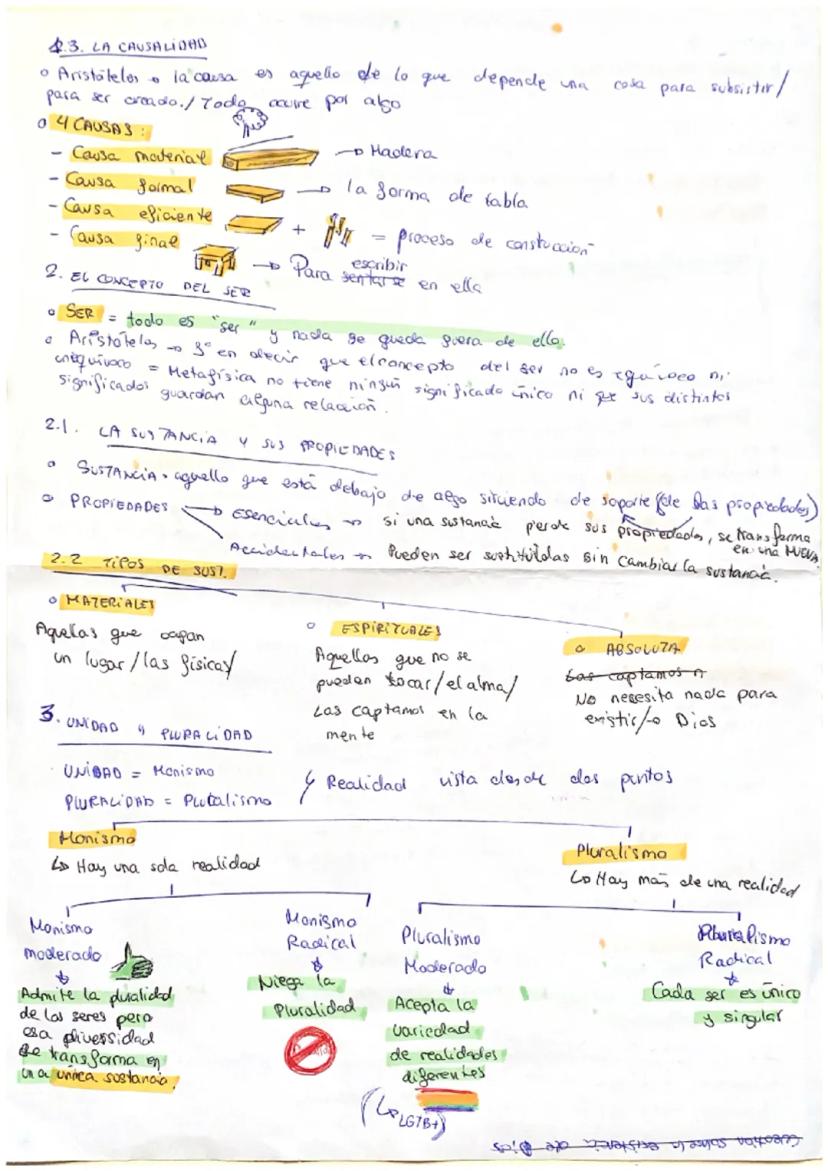 1.3. LA CAUSALIDAD
Aristóteles → la causa es aquello de lo que depende una cosa para subsistir/
para ser creado./ Todo ocurre por algo
4 CAUSAS:
- Causa material → Madera
- Causa formal → la forma de tabla
- Causa eficiente + = proceso de construcción
- Causa final → Para sentarse escribir en ella
2. EL CONCEPTO DEL SER
SER = todo es "ser" y nada se queda fuera de ello.
Aristóteles → 1º en decir que el concepto del ser no es equívoco ni
unequívoco = Metafísica no tiene ningún significado único ni que sus distintos
significados guardan alguna relación.
2.1. LA SUSTANCIA Y SUS PROPIEDADES
SUSTANCIA = aquello que está debajo de algo sirviendo de soporte (de las propiedades)
PROPIEDADES → Esenciales → si una sustancia pierde sus propiedades, se transforma
en una NUEVA.
Accidentales → Pueden ser sustituidas sin cambiar la sustancia.
2.2 TIPOS DE SUST.
MATERIALES
Aquellas que ocupan
un lugar/las físicas/
ESPIRITUALES
Aquellas que no se
pueden tocar/el alma/
Las captamos en la
mente
ABSOLUTA
Las captamos n
No necesita nada para
existir/→ Dios
3. UNIDAD Y PLURALIDAD
UNIDAD = Monismo
PLURALIDAD = Pluralismo
Realidad vista desde dos puntos
Monismo
↳ Hay una sola realidad
Pluralismo
↳ Hay más de una realidad
Monismo
moderado
Admite la pluralidad
de los seres pero
esa diversidad
se transforma en
una única sustancia.
Monismo
Radical
Niega la
Pluralidad
Pluralismo
Moderado
Acepta la
variedad
de realidades
diferentes
(↳ LGTB+)
Pluralismo
Radical
Cada ser es único
y singular
Cuestión sobre la existencia de Dios